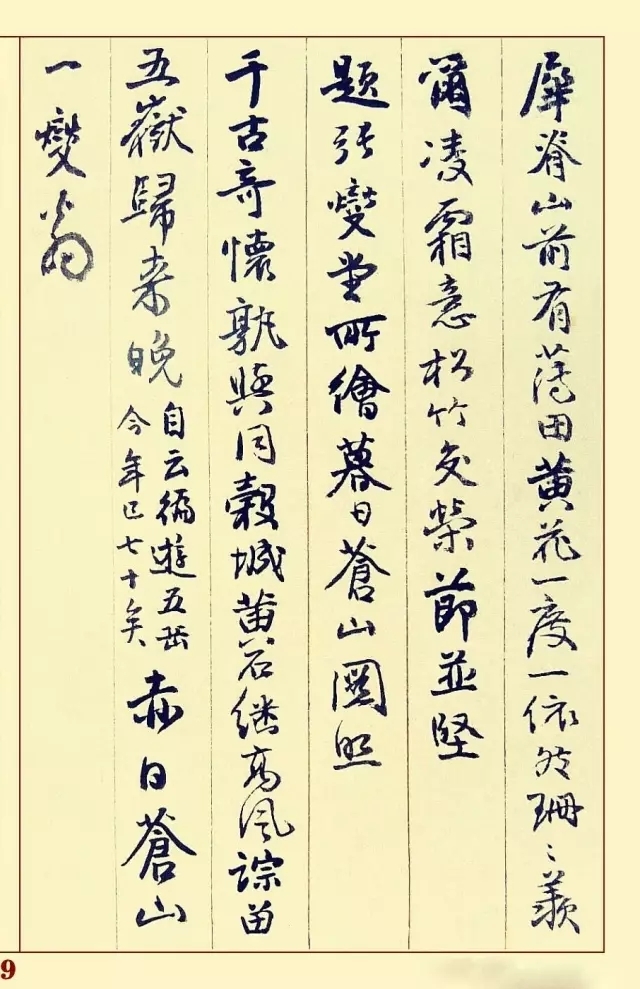 犀脊山前有薄田黄花一度一依然珊〻羨
爾凌霜意松竹交榮節並堅
題張燮堂所繪暮日蒼山圖照
千古奇懷孰與同榖城黄石继高風踪留
五嶽歸来晚
自云徧遊五岳
今年已七十矣
赤日蒼山
一燮翁
9